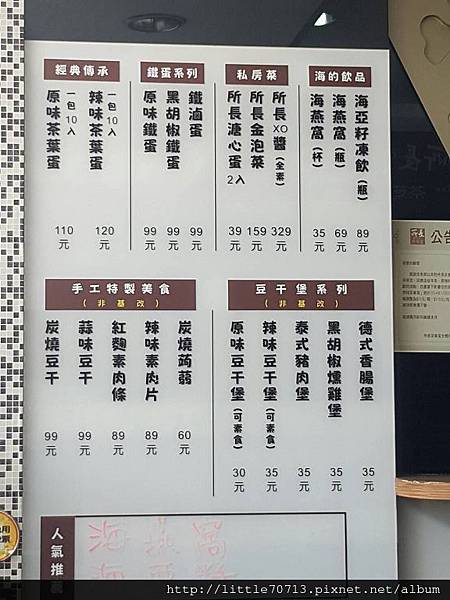 經典傳承
原味茶葉蛋 一包10入 110元
辣味茶葉蛋 一包10入 120元
鐵蛋系列
原味鐵蛋 99元
黑胡椒鐵蛋 99元
鐵滷蛋 99元
私房菜
所長溏心蛋 2入 39元
所長金泡菜 159元
所長XO醬(全素) 329元
海的飲品
海燕窩(杯) 35元
海燕窩(瓶) 69元
海亞籽凍飲(瓶) 89元
手工特製美食
(非基改)
炭燒豆干 99元
蒜味豆干 99元
紅麴素肉條 89元
辣味素肉片 89元
炭燒蒟蒻 60元
豆干堡系列
(非基改)
原味豆干堡(可素食) 30元
辣味豆干堡(可素食) 35元
泰式豬肉堡 35元
黑胡椒燻雞堡 35元
德式香腸堡 35元
人氣推
公告
http://little70713.pixnet.net/album